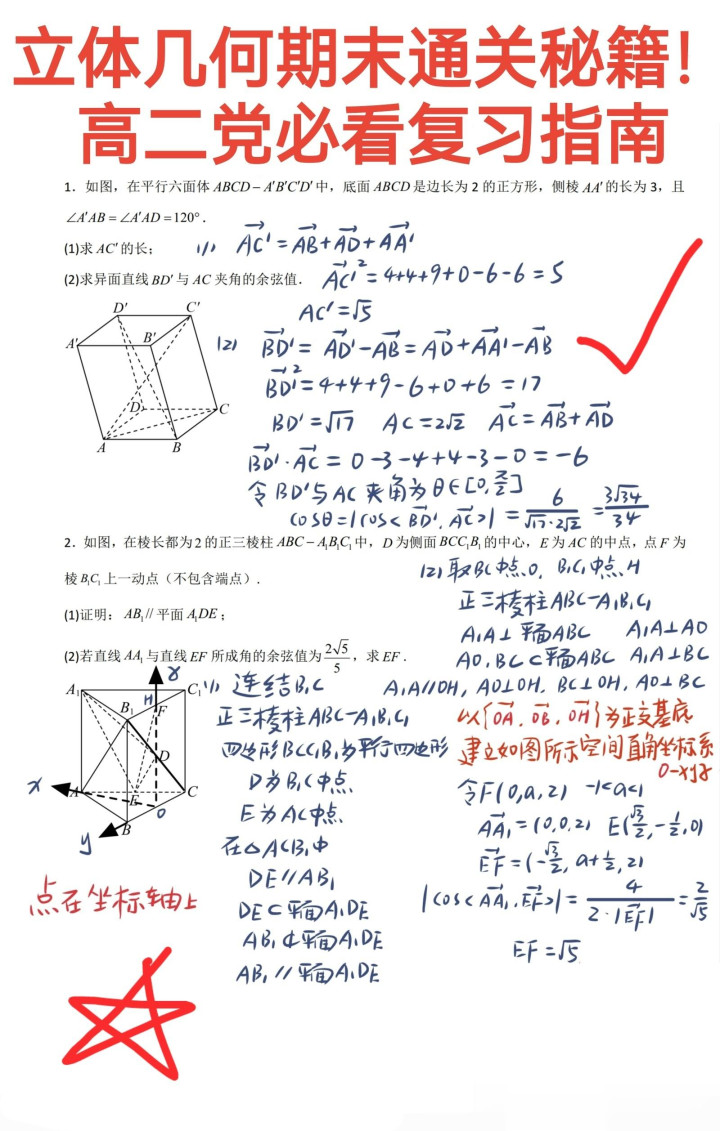 立体几何期末通关秘籍!
高二党必看复习指南
1. 如图，在平行六面体 ABCD－A'B'C'D' 中，底面 ABCD 是边长为 2 的正方形，侧棱 AA' 的长为 3，且
∠A'AB＝∠A'AD＝120°．
(1)求 AC' 的长；
(2)求异面直线 BD' 与 AC 夹角的余弦值．
(1) AC'＝AB+AD+AA'
AC'²＝4+4+9+0-6-6＝5
AC'＝√5
(2) BD'＝AD'-AB＝AD+AA'-AB
BD'²＝4+4+9-6+0+6＝17
BD'＝√17 AC＝2√2 AC＝AB+AD
BD'·AC＝0-3-4+4-3-0＝-6
令BD'与AC夹角为θ∈[0,π/2]
cosθ＝|cos<BD',AC>|＝6/(√17·2√2)＝3√34/34
D' C'
A' B'
D C
A B
2. 如图，在棱长都为 2 的正三棱柱 ABC－A₁B₁C₁ 中，D 为侧面 BCC₁B₁ 的中心，E 为 AC 的中点，点 F 为
棱 B₁C₁ 上一动点（不包含端点）．
(1)证明：AB₁// 平面 A₁DE；
(2)若直线 AA₁ 与直线 EF 所成角的余弦值为 2√5/5，求 EF．
(1) 连结B₁C
正三棱柱ABC-A₁B₁C₁
四边形BCC₁B₁为平行四边形
D为B₁C中点
E为AC中点
在△ACB₁中
DE//AB₁
DE⊂平面A₁DE
AB₁⊄平面A₁DE
AB₁//平面A₁DE
(2) 取BC中点O, B₁C₁中点H
正三棱柱ABC-A₁B₁C₁
A₁A⊥平面ABC A₁A⊥AO
AO,BC⊂平面ABC A₁A⊥BC
A₁A//OH, AO⊥OH, BC⊥OH, AO⊥BC
以{OA,OB,OH}为正交基底
建立如图所示空间直角坐标系
O-xyz
令F(0,a,2) -1<a<1
AA₁＝(0,0,2) E(√3/2,-1/2,0)
EF＝(-√3/2,a+1/2,2)
|cos<AA₁,EF>|＝4/(2·|EF|)＝2/√5
EF＝√5
z
A₁ H C₁
B₁ F
D
x A E C
O
y B
点在坐标轴上